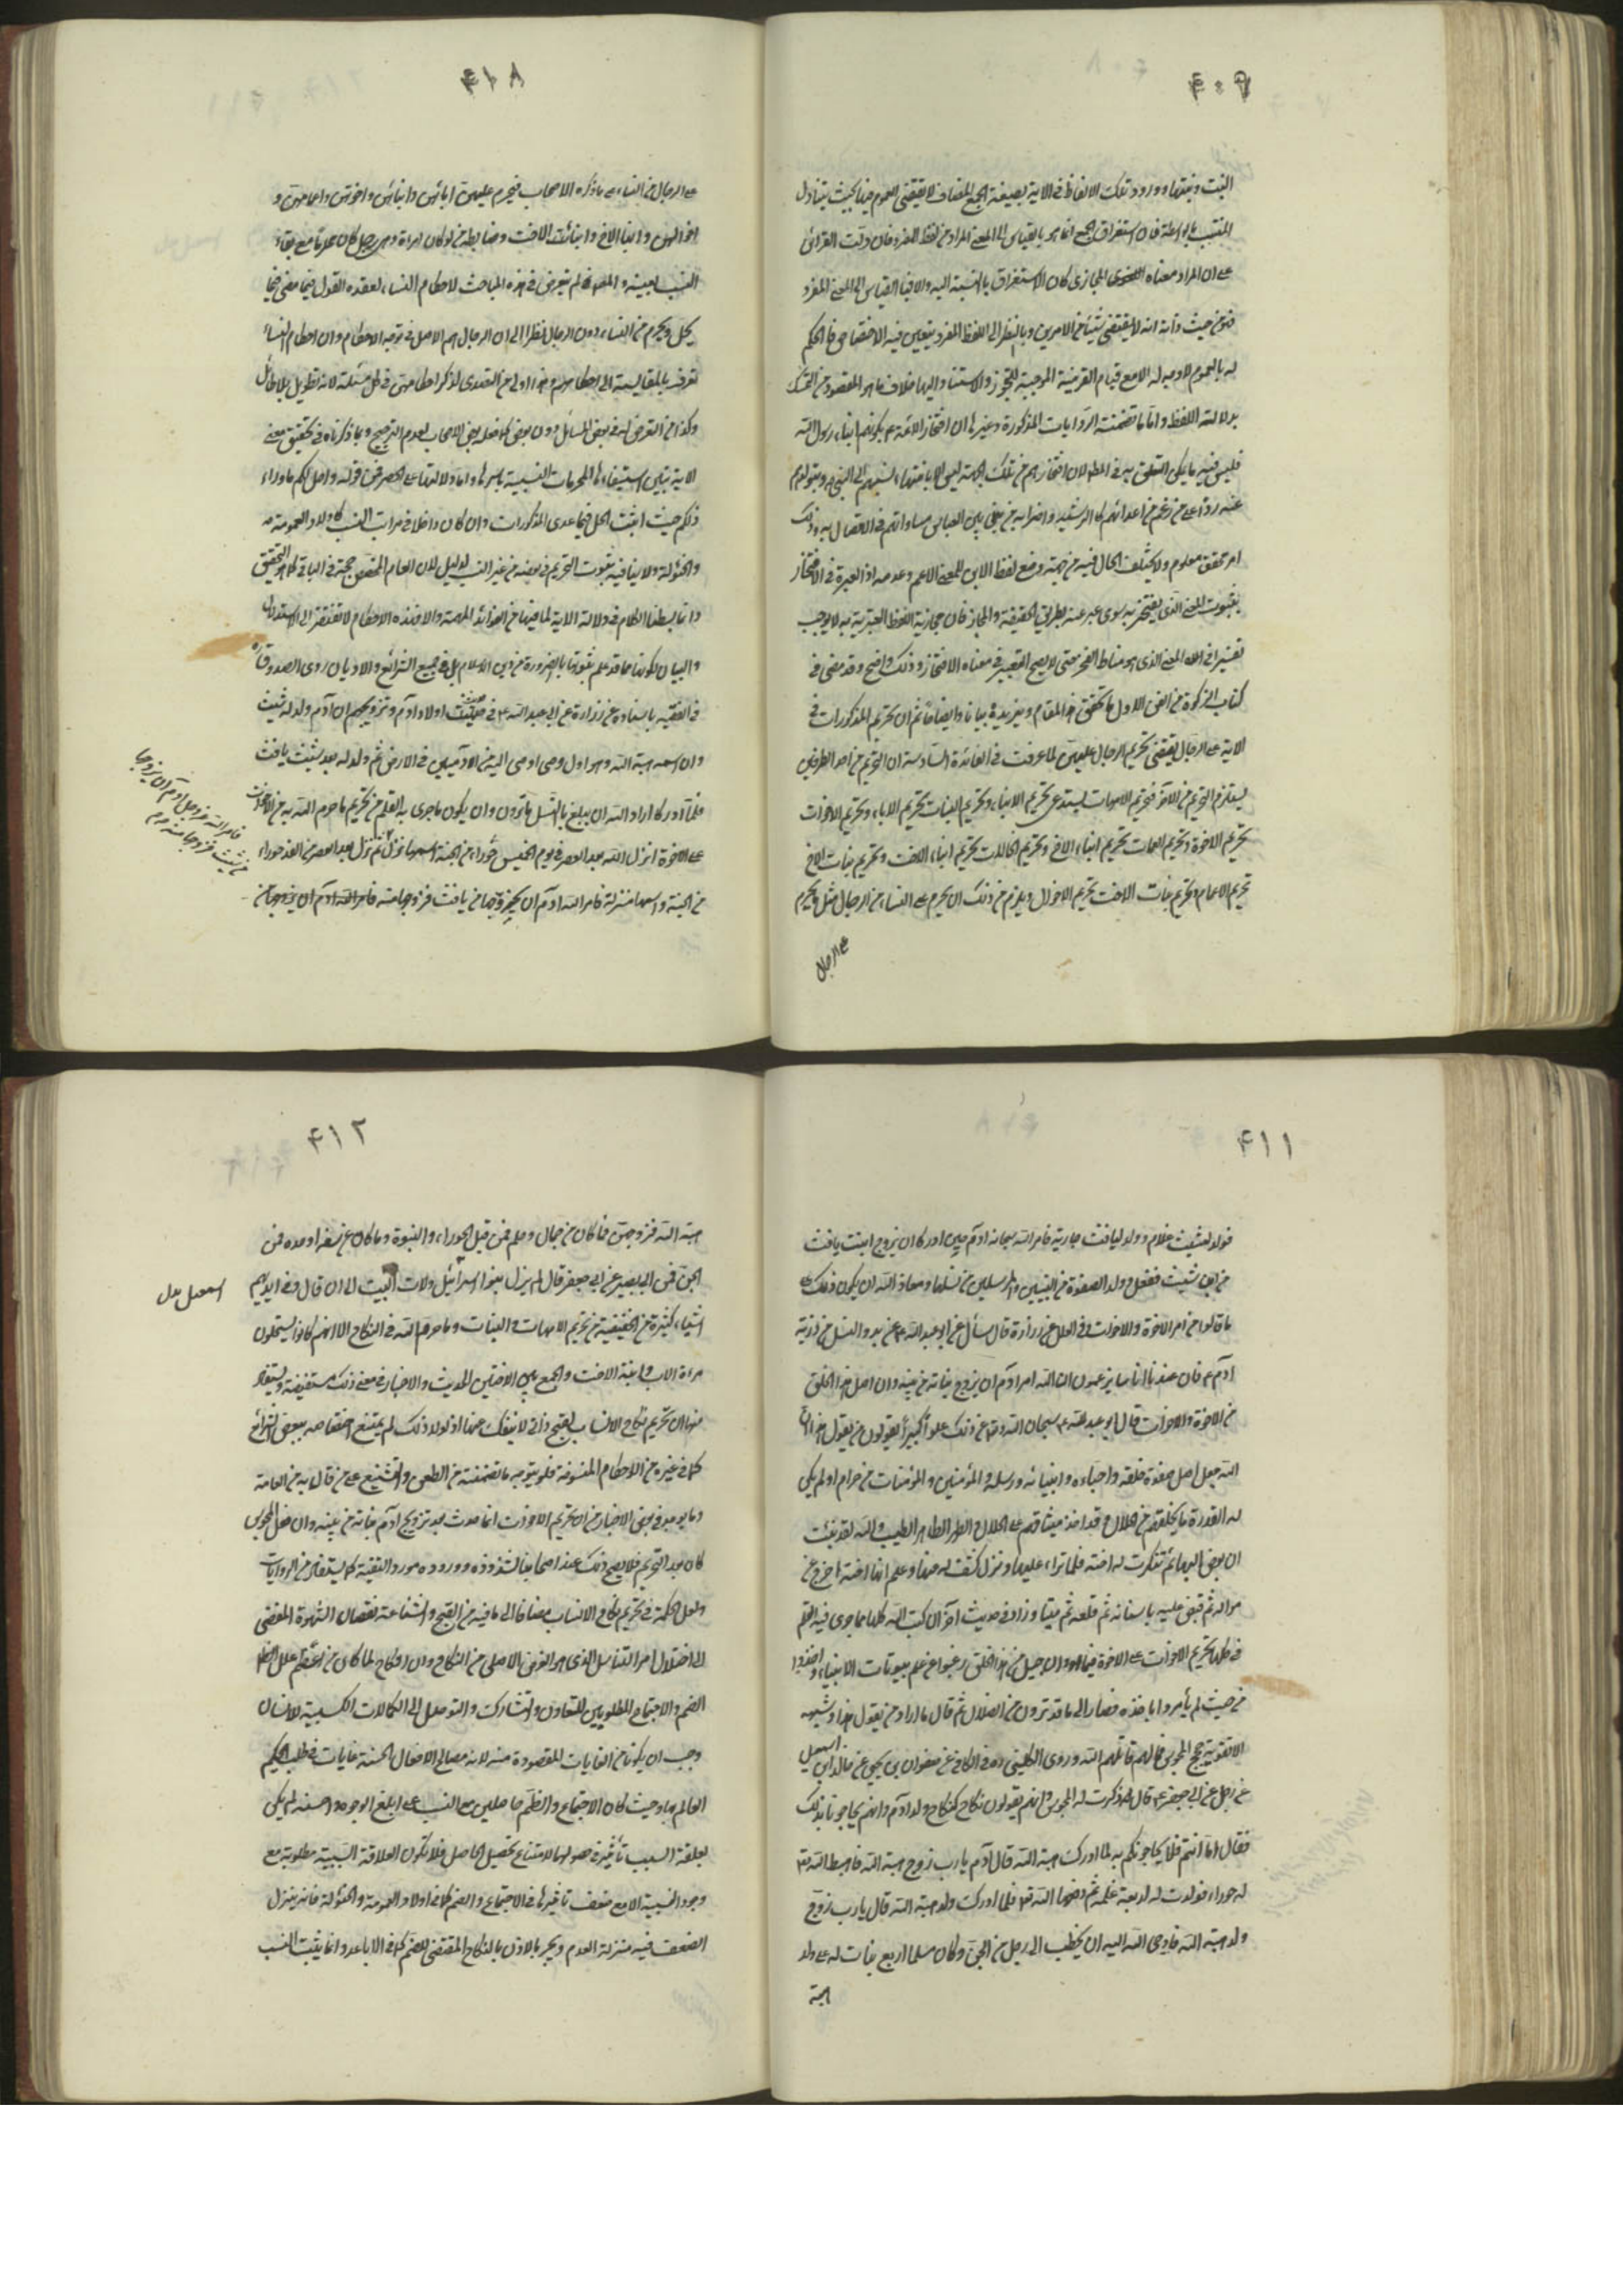 ۴۰۹
البنت وبنتها وورود تلك الالفاظ في الاية بصيغة الجمع المضاف لا يقتضي العموم فيها بحيث يتناول
المنتسب بالواسطة فان استغراق الجمع انما هو بالقياس الى المعنى المراد من لفظ المفرد فان دلت القرائن
على ان المراد معناه المجازي كان الاستغراق بالنسبة اليه والا فبالقياس الى المعنى المفرد
فهو من حيث ذاته انه لا يقتضي شيئا من الامرين وبالنظر الى اللفظ المفرد يتعين فيه الاختصاص فالحكم
له بالعموم لا وجه له الا مع قيام القرينة الموجبة للتجوز والاستناد اليها خلاف ما هو المقصود من التمسك
بدلالة اللفظ واما ما تضمنته الروايات المذكورة وغيرها ان افتخار الائمة ع بكونهم ابناء رسول الله
فليس فيه ما يمكن التعلق به في المط لان افتخارهم من تلك الجهة ليس الا بانتهاء نسبهم الى النبي ص وبتولدهم
عنه ردا على من زعم من اعدائهم كالرشيد واضرابه من بني العباس مساواتهم في الاتصال به وذلك
امر محقق معلوم ولا يختلف الحال فيه من جهة وضع لفظ الابن للمعنى الاعم وعدمه اذ العبرة في الافتخار
بثبوت المعنى الذي يفتخر به سوى عبر عنه بطريق الحقيقة والمجاز فان مجازية اللفظ المعبر به لا يوجب
تغييرا في المعنى الذي هو مناط الفخر حتى لا يصح التعبير في معناه الافتخار وذلك واضح وقد مضى في
كتاب الزكوة من الفن الاول ما تحقق هذا المقام ويزيده بيانا وايضاحا ثم ان تحريم المذكورات في
الاية على الرجال يقتضي تحريم الرجال عليهن لما عرفت في الفائدة السادسة ان التحريم من احد الطرفين
يستلزم التحريم من الاخر فتحريم الامهات يستدعي تحريم الابناء وتحريم البنات تحريم الاباء وتحريم الاخوات
تحريم الاخوة وتحريم العمات تحريم ابناء الاخ وتحريم الخالات تحريم ابناء الاخت وتحريم بنات الاخ
تحريم الاعمام وتحريم بنات الاخت تحريم الاخوال ويلزم من ذلك ان يحرم على النساء من الرجال مثل ما يحرم
على الرجال
۴۱۸
على الرجال من النساء على ما ذكره الاصحاب فيحرم عليهن ابائهن وابنائهن واخوتهن واعمامهن و
اخوالهن وابناء الاخ وابناء الاخت وضابطه من لو كان امراة وهي رجل كان محرما مع بقاء
النسب بعينه والمصنف لم يتعرض في هذه المباحث لاحكام النساء لعقده القول فيما مضى فيما
يحل ويحرم من النساء دون الرجال نظرا الى ان الرجال هم الاصل في توجه الاحكام وان احكام النساء
تعرف بالمقايسة الى احكامهم وهذا اولى من التصدي لذكر احكامهن في كل مسئلة لانه تطويل بلا طائل
وكذا من التعرض له في بعض المسائل دون بعض كما فعله بعض الاصحاب لعدم الترجيح وبما ذكرناه في تحقيق معنى
الاية يتبين استيفاؤها المحرمات النسبية باسرها واما دلالتها على الحصر فمن قوله واحل لكم ما وراء
ذلكم حيث اثبت الحل فيما عدى المذكورات وان كان داخلا في مراتب النسب كاولاد العمومة
والخئولة ولا ينافيه ثبوت التحريم في بعضه من غير النسب لدليل لان العام المخصص حجة في الباقي كما هو التحقيق
وانما بسطنا الكلام في دلالة الاية لما فيها من الفوائد المهمة والا فهذه الاحكام لا تفتقر الى الاستدلال
والبيان لكونها مما قد علم ثبوتها بالضرورة من دين الاسلام بل في جميع الشرائع والاديان روى الصدوق ره
في الفقيه باسناده عن زرارة عن ابي عبد الله ع في حديث اولاد آدم وتزويجهم ان آدم ولد له شيث
وان اسمه هبة الله وهو اول وصي اوصي اليه من الآدميين في الارض ثم ولد له بعد شيث يافث
فلما ادركا اراد الله ان يبلغ بالنسل ما ترون وان يكون ما جرى به القلم من تحريم ما حرم الله به من الاخوات
على الاخوة انزل الله بعد العصر في يوم الخميس حوراء من الجنة اسمها نزلة ثم نزل بعد العصر من الغد حوراء
من الجنة واسمها منزلة فامر الله ادم ان يزوجها من يافث فزوجها منه فامر الله آدم ان يزوجها من
فامر الله عز وجل آدم ان يزوجها
من شيث فزوجها منه ثم
۴۱۱
فولد لشيث غلام وولد ليافث جارية فامر الله سبحانه ادم حين ادركا ان يزوج ابنت يافث
من ابن شيث ففعل وولد الصفوة من النبيين والمرسلين من نسلهما ومعاذ الله ان يكون ذلك على
ما قالوا من امر الاخوة والاخوات وفي العلل عن زرارة قال سأل عن ابو عبد الله ع عن بدو النسل من ذرية
آدم ع فان عندنا اناسا يزعمون ان الله امر آدم ان يزوج بناته من بنيه وان اصل هذا الخلق
من الاخوة والاخوات قال ابو عبد الله ع سبحان الله وتع عن ذلك علوا كبيرا يقولون من يقول هذا ان
الله جعل اصل صفوة خلقه واحباءه وانبيائه ورسله والمؤمنين والمؤمنات من حرام او لم يكن
له القدرة ما يخلقهم من حلال وقد اخذ ميثاقهم على الحلال والطهر الطاهر الطيب والله لقد نبئت
ان بعض البهائم تنكرت له اخته فلما نزا عليها ونزل كشف له عنها وعلم انها اخته اخرج عن
مرالته ثم قبض عليه باسنانه ثم قلعه ثم ميتا وزاد في حديث آخر ان كتب الله كلها مما جرى فيه القلم
في كلها تحريم الاخوات على الاخوة ان جيلا من هذا الخلق رغبوا عن علم بيوتات الانبياء واخذوا
من حيث لم يأمروا باخذه فصاروا الى ما قد ترون من الضلال ثم قال ما اراد من يقول هذا وشبهه
الا تقوية حجج المجوس فما لهم قاتلهم الله وروى الكليني ره في الكافي عن صفوان بن يحيى عن خالد ابن اسمعيل
عن رجل عن ابي جعفر ع قال ذكرت له المجوس وانهم يقولون نكاح كنكاح ولد ادم وانهم يحاجونا بذلك
فقال اما انتم فلا يحاجونكم به لما ادرك هبة الله قال آدم يا رب زوج هبة الله فاهبط الله تع
له حوراء فولدت له اربعة غلمة ثم رفعها الله تع فلما ادرك ولد هبة الله قال يا رب زوج
ولد هبة الله فاوحى الله اليه ان يخطب الى رجل من الجن وكان مسلما اربع بنات له على ولد
هبة
۴۱۲
هبة الله فزوجهن فما كان من جمال وحلم فمن قبل الحوراء والنبوة وما كان من سفه او حدة فمن
الجن فمن ابي بصير عن ابي جعفر قال لم يزل بنوا اسرائيل ولات البيت الى ان قال وفي ايديهم
اسمعيل بدل
اشياء كثيرة من الحنيفية من تحريم الامهات والبنات وما حرم الله في النكاح الا انهم كانوا يستحلون
مراة الاب وابنة الاخت والجمع بين الاختين الحديث والاخبار في معنى ذلك مستفيضة ويستفاد
منها ان تحريم نكاح الانساب لقبح ذاتي لا ينفك عنها اذ لولا ذلك لم يمتنع اختصاصه ببعض الشرائع
كما في غيره من الاحكام المنسوخة فلا يتوجه ما تضمنته من الطعن والتشنيع على من قال به من العامة
وما يوجد في بعض الاخبار من ان تحريم الاخوات انما حدث بعد تزويج ادم بناته من بنيه وان فعل المجوس
كان بعد التحريم فلا يصح ذلك عند اصحابنا لشذوذه ووروده مورد التقية كما يستفاد من الروايات
ولعل الحكمة في تحريم نكاح الانساب مضافا الى ما فيه من القبح والشناعة نقصان الشهوة المفضي
الى اختلال امر التناسل الذي هو الغرض الاصلي من النكاح وان النكاح لما كان من اعظم علل
الضم والاجتماع المطلوبين للتعاون والتشارك والتوصل الى الكمالات الكسبية للانسان
وجب ان يكونا من الغايات المقصودة منه لانه مصالح الافعال الحسنة غايات في طلب الحكيم
العالم بها وحيث كان الاجتماع والنظم حاصلين مع النسب على ابلغ الوجوه واحسنه لم يكن
لعلقة السبب تأثير في حصولهما لامتناع تحصيل الحاصل فلا تكون العلاقة السببية مطلوبة مع
وجود النسبية الا مع ضعف تاثيرها في الاجتماع والضم كما في اولاد العمومة والخئولة فانه ينزل
الضعف فيه منزلة العدم ويجبر بالاذن بالنكاح المقتضي للضم كما في الاباعد وانما يثبت النسب